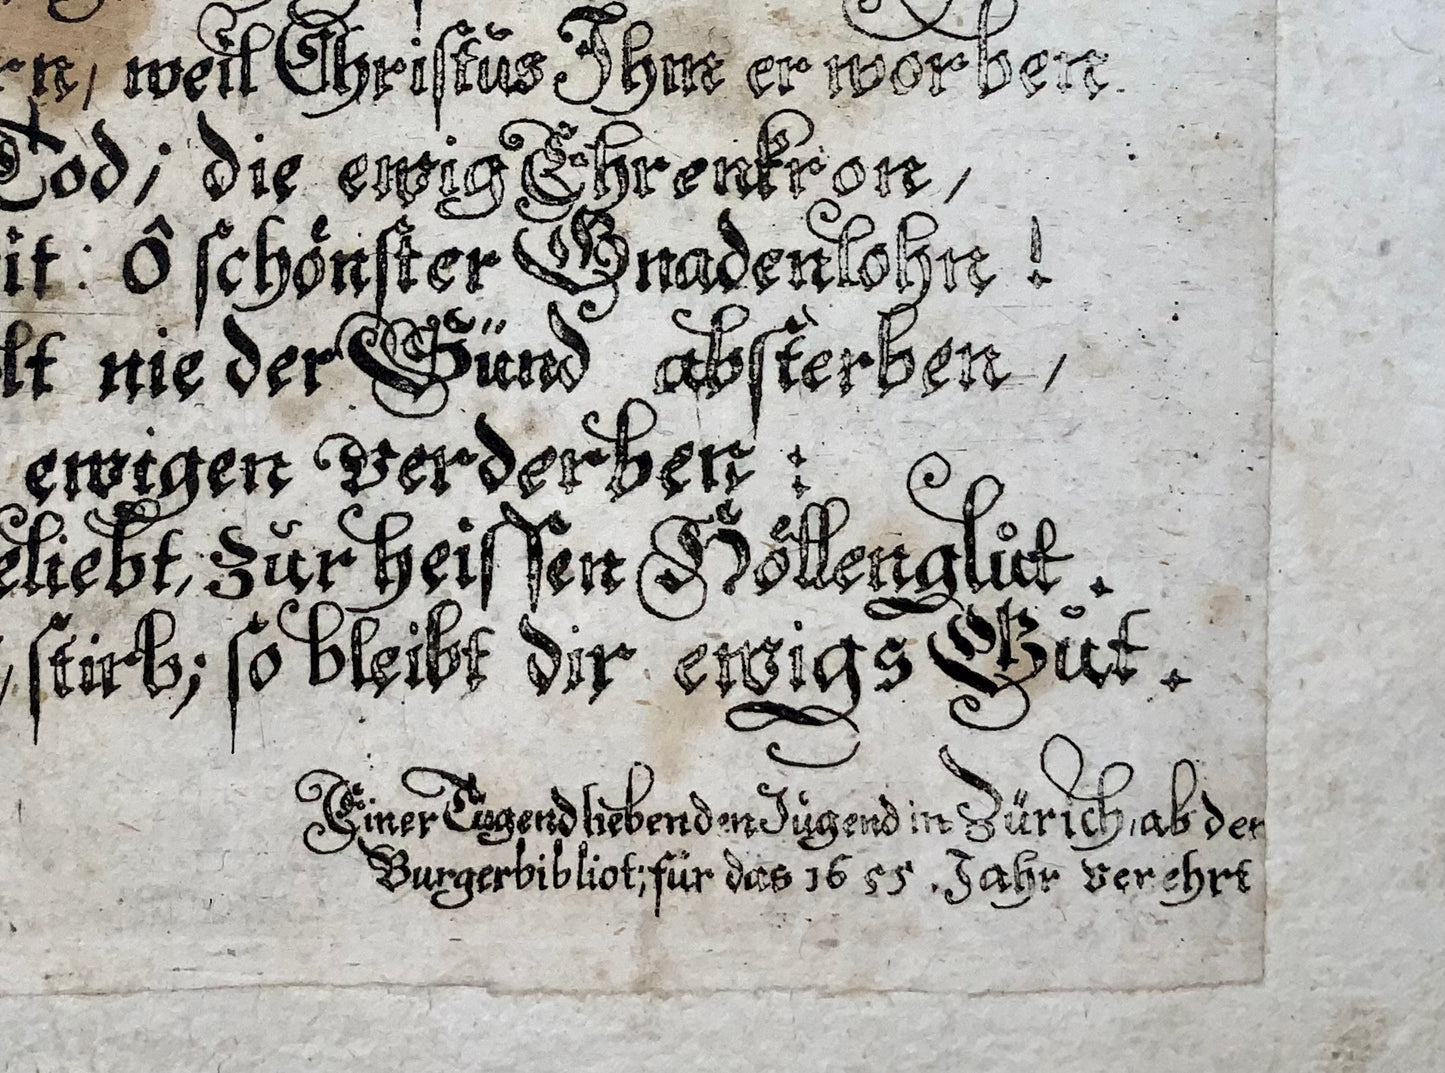 rn, weil Christus Ihm erworben
Tod; die ewig Ehrenkron,
it: ô schönster Gnadenlohn!
lt nie der Sünd absterben,
ewigen verderben:
eliebt, zur heissen Höllenglůt.
, stirb; so bleibt dir ewigs Gůt.
Einer Tugend liebenden Jugend in Zürich, ab der
Burgerbibliot; für das 1655. Jahr verehrt